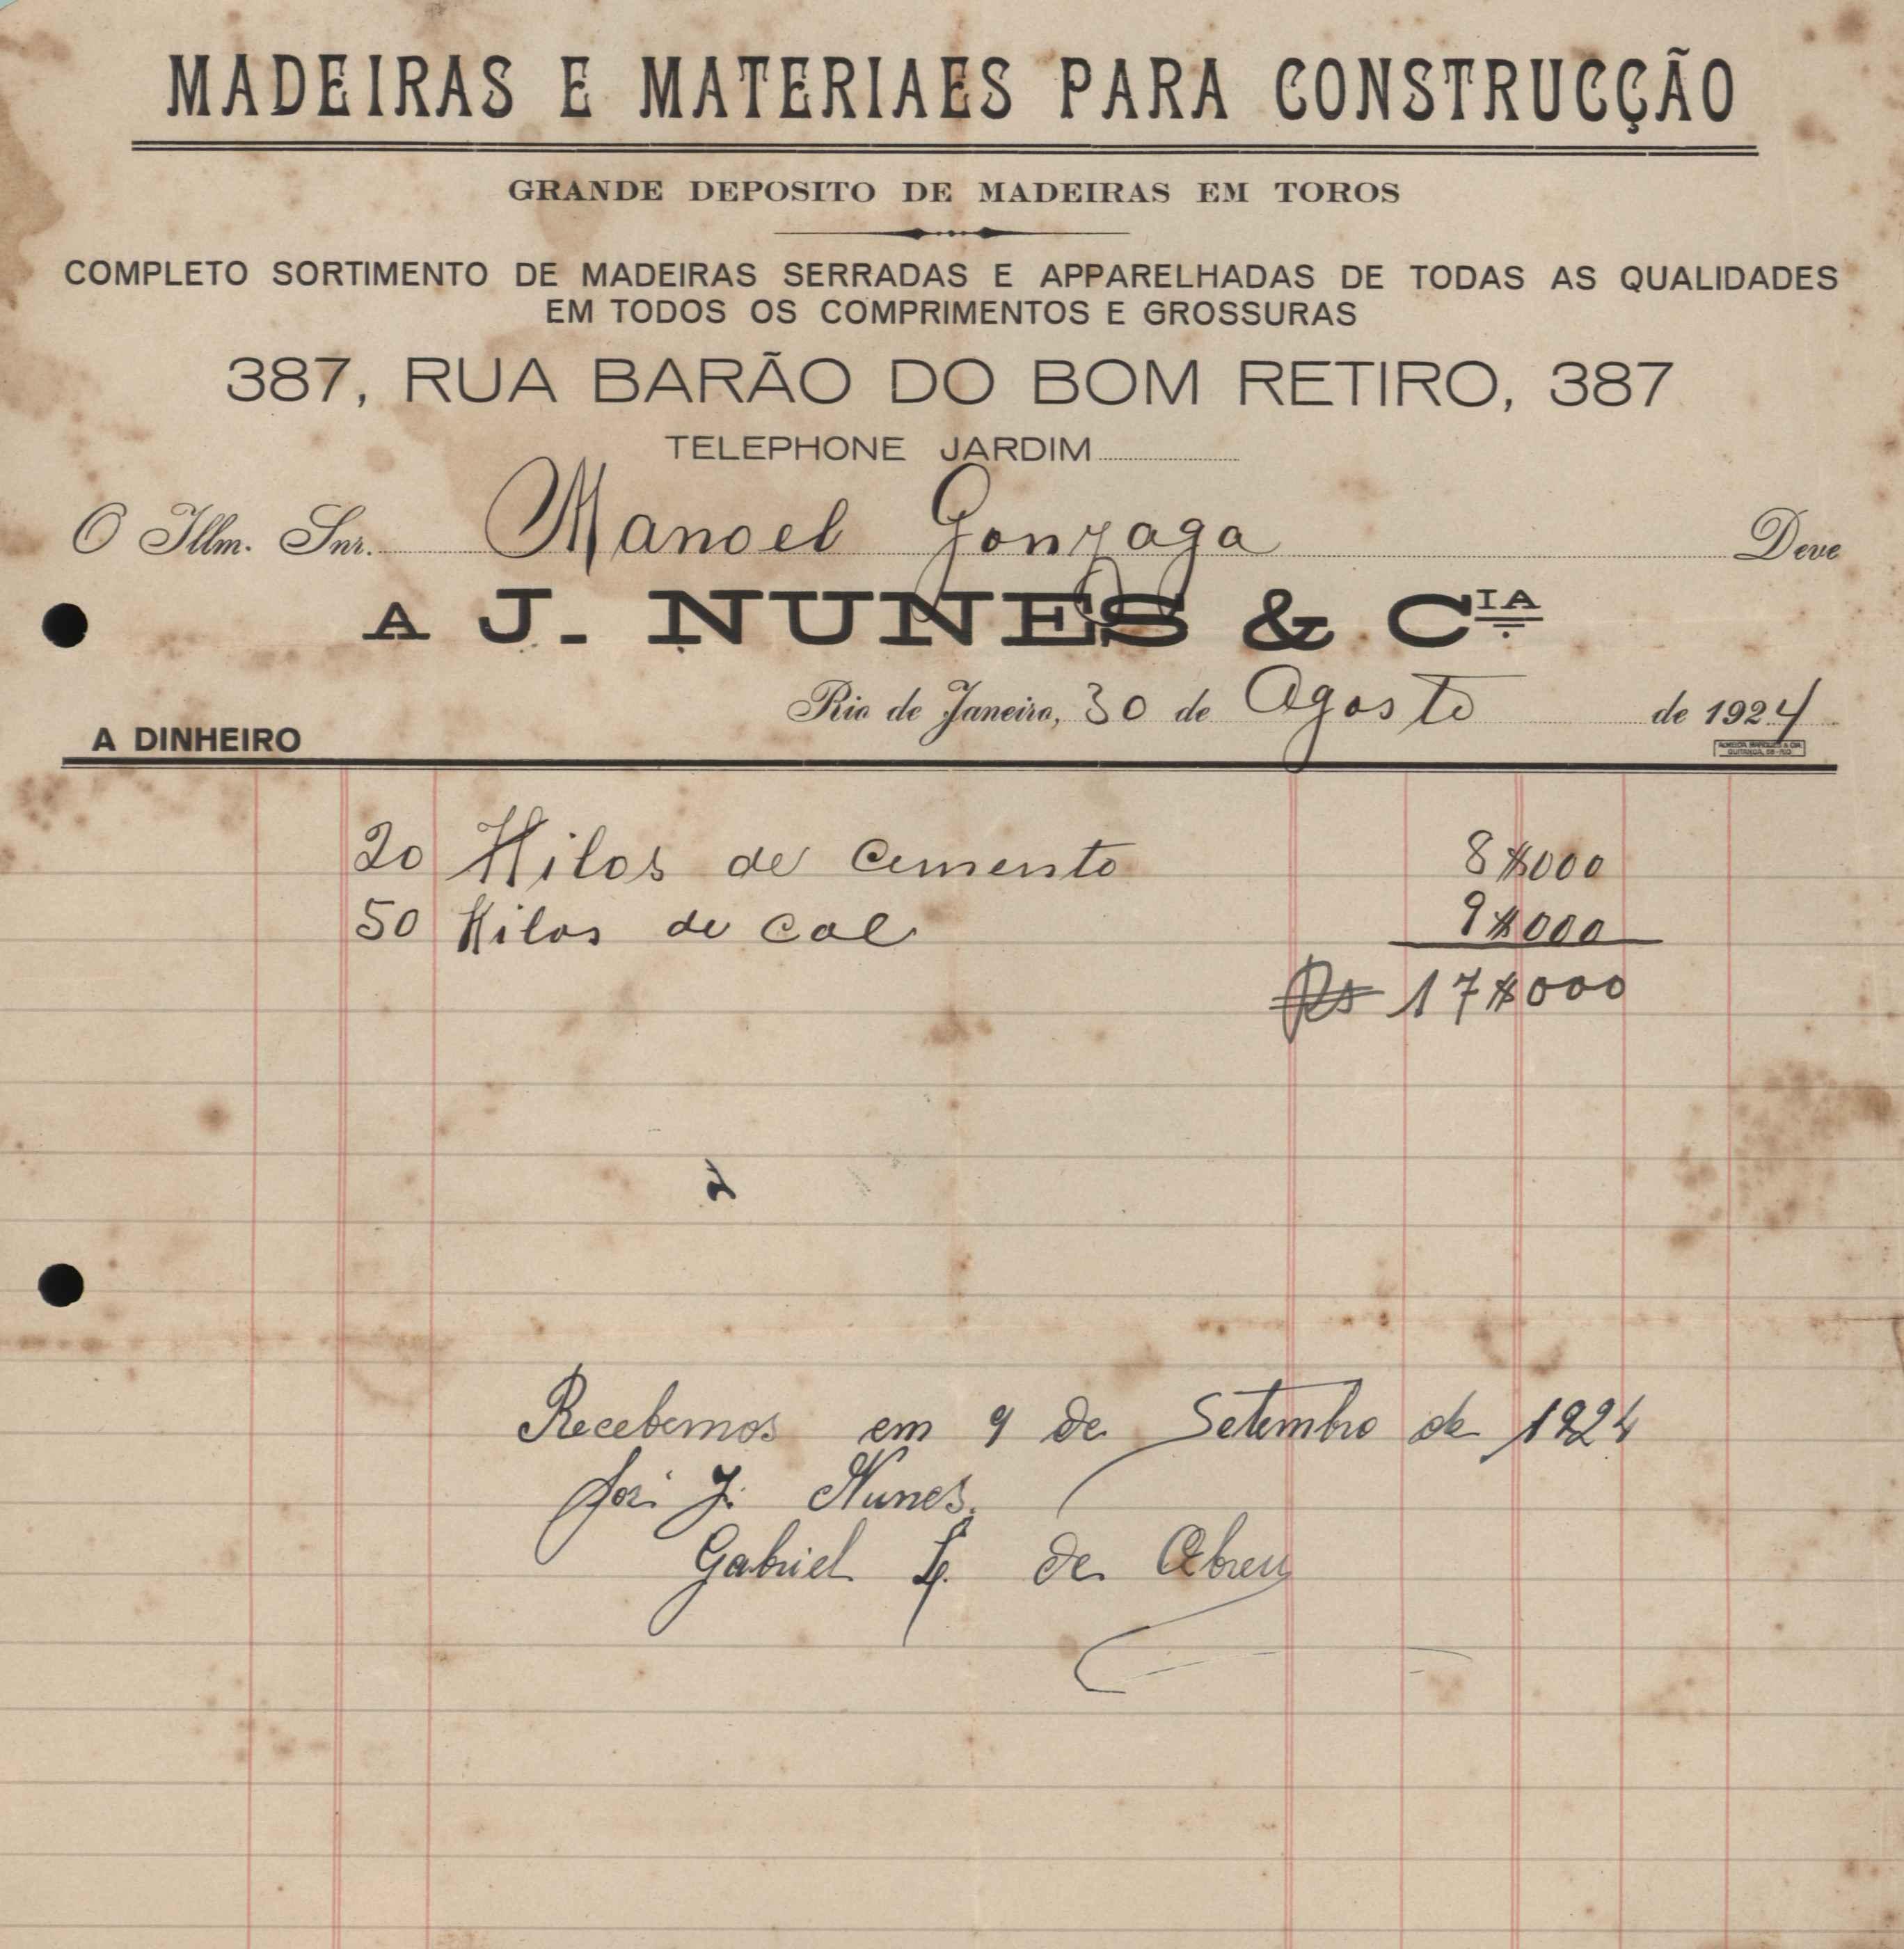 MADEIRAS E MATERIAES PARA CONSTRUCÇÃO
GRANDE DEPOSITO DE MADEIRAS EM TOROS
COMPLETO SORTIMENTO DE MADEIRAS SERRADAS E APPARELHADAS DE TODAS AS QUALIDADES
EM TODOS OS COMPRIMENTOS E GROSSURAS
387, RUA BARÃO DO BOM RETIRO, 387
TELEPHONE JARDIM
O Illm. Snr. Manoel Gonzaga Deve
A J. NUNES & CIA
Rio de Janeiro, 30 de Agosto de 1924
A DINHEIRO
20 Kilos de Cemento 8$000
50 Kilos de Cal 9$000
Rs 17$000
Recebemos em 9 de Setembro de 1924
José J. Nunes.
Gabriel L. de Abreu